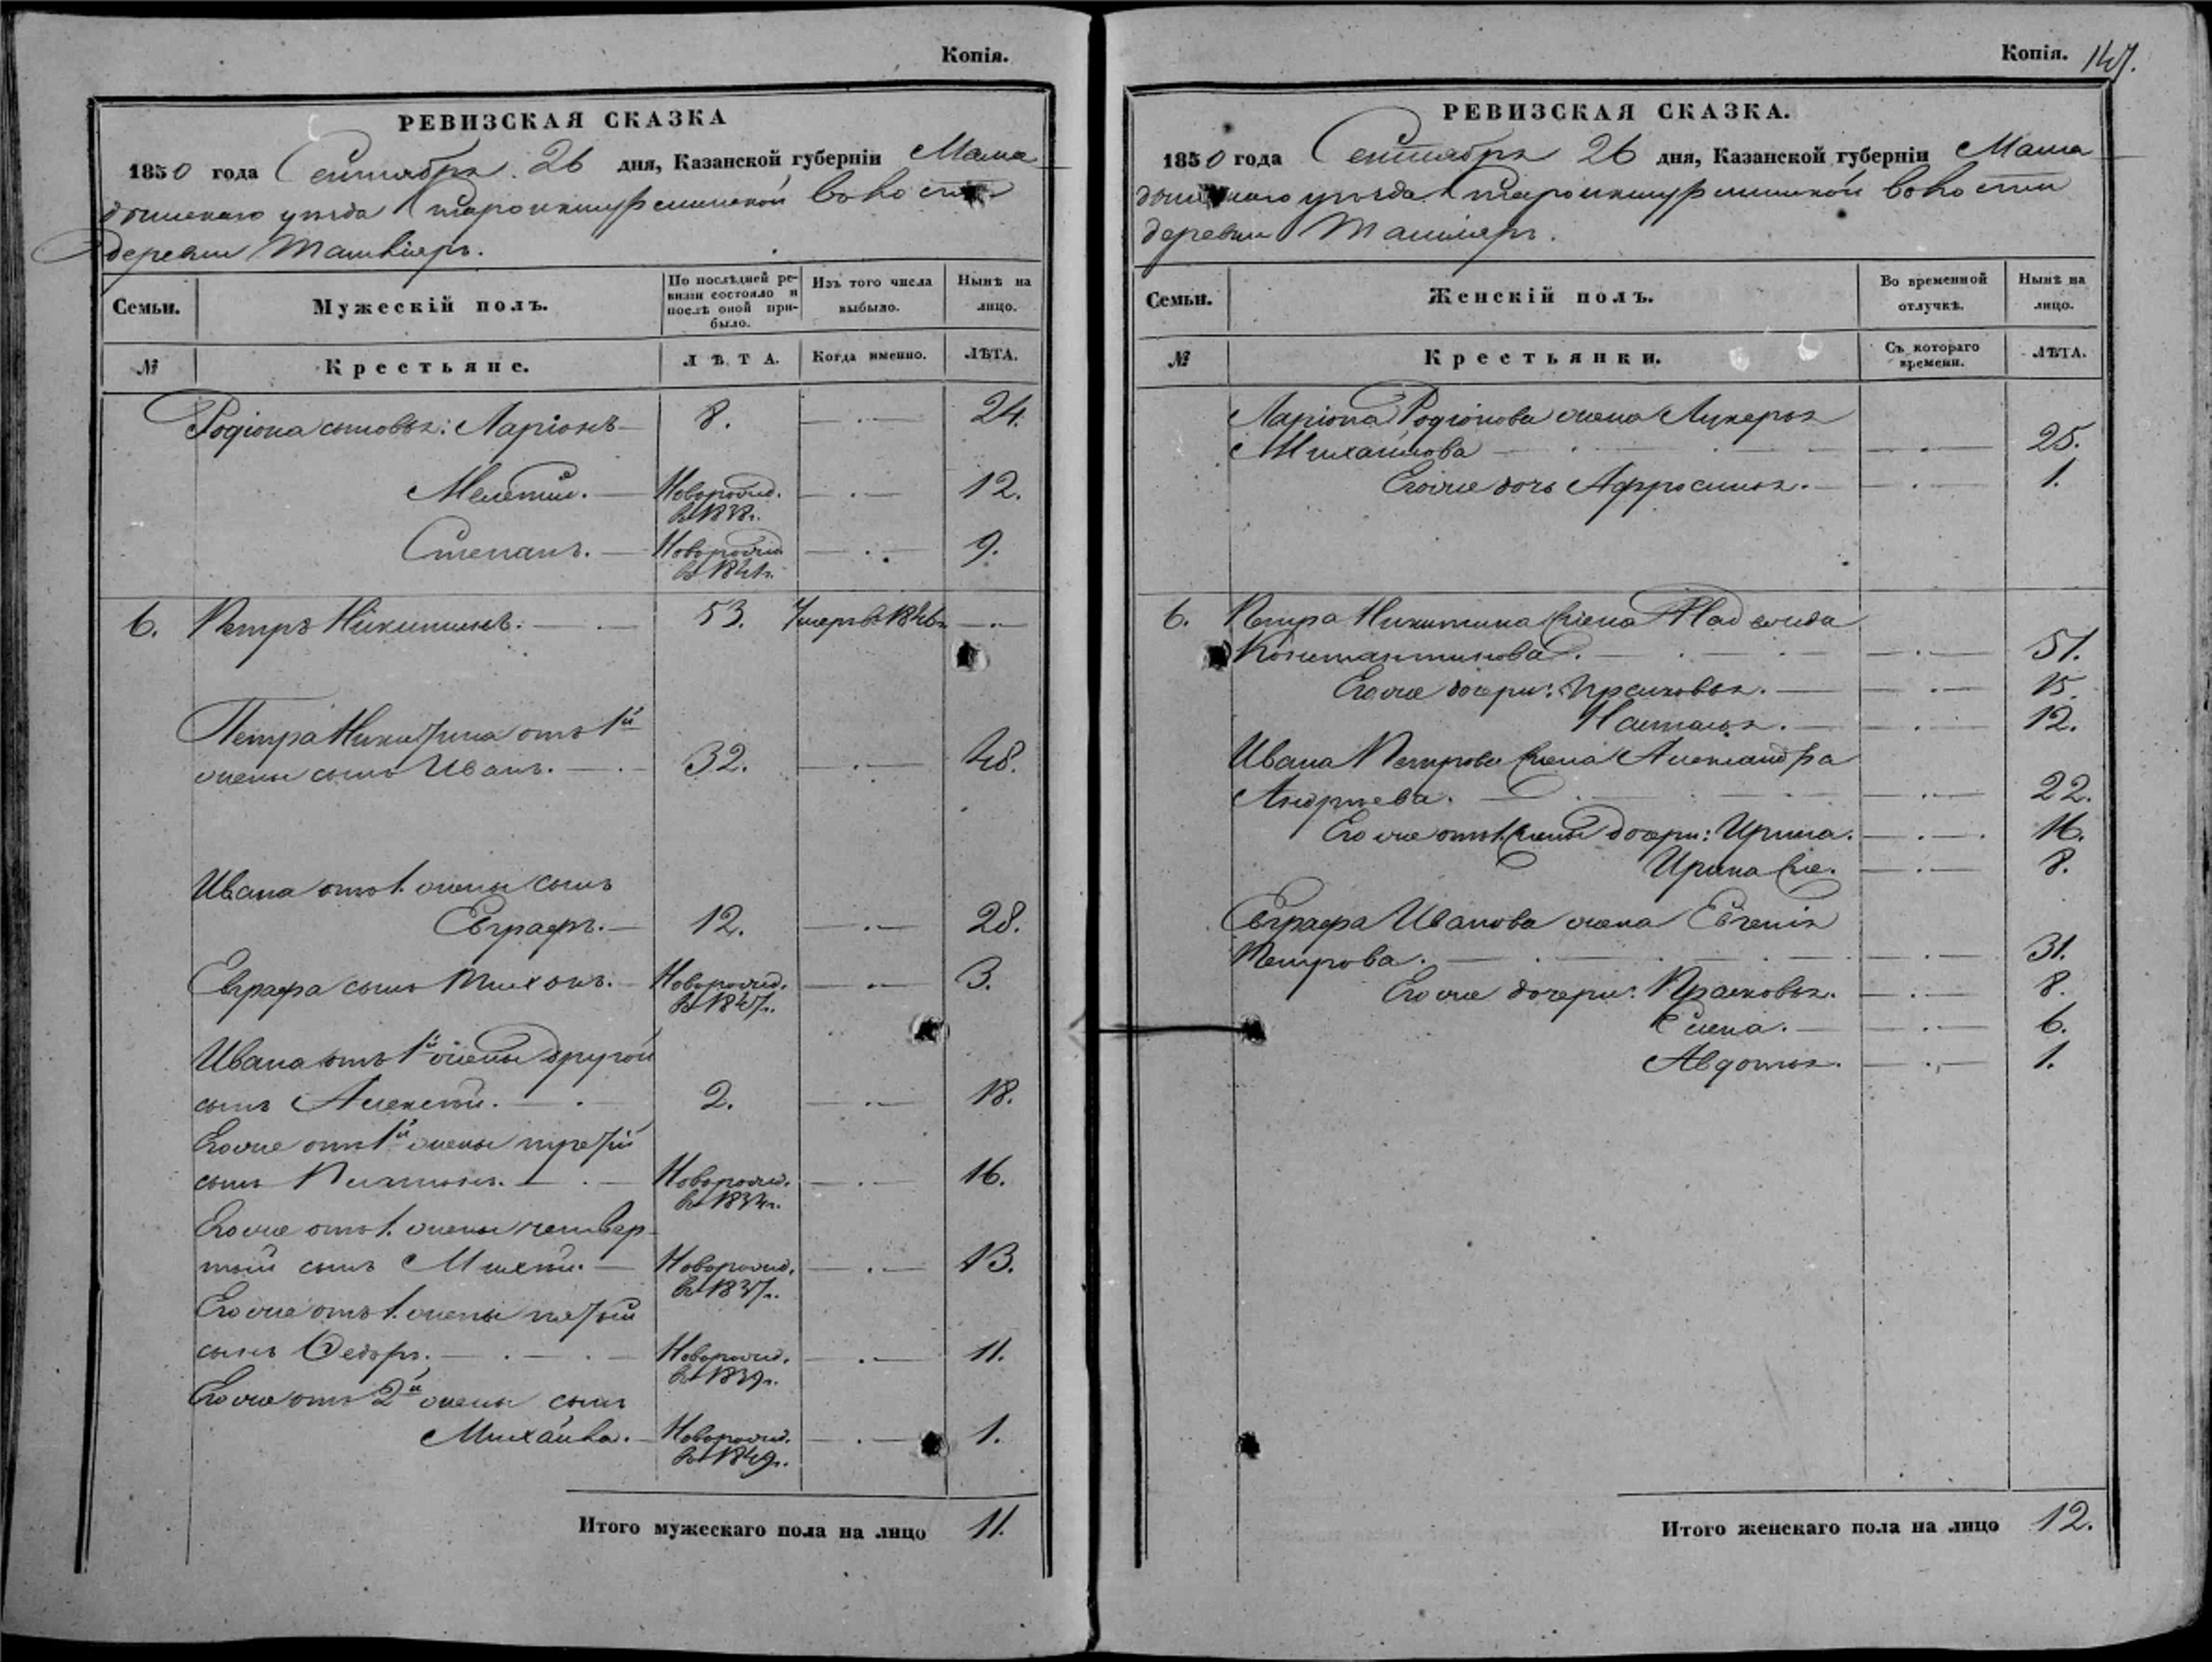 Копія.
РЕВИЗСКАЯ СКАЗКА
1850 года Сентября 26 дня, Казанской губерніи Мама
дышскаго уѣзда Староикшурминской волости
деревни Ташкіяръ.
Семьи.
Мужескій полъ.
По послѣдней ре-
визіи состояло и
послѣ оной при-
было.
Изъ того числа
выбыло.
Нынѣ на
лицо.
№
Крестьяне.
ЛѢТА.
Когда именно.
ЛѢТА.
Родіона сыновья: Ларіонъ 8. 24.
Мелетій. Новорожд. 12.
въ 1838г.
Степанъ. Новорожд. 9.
въ 1841г.
6. Петръ Никитинъ. 53. Умеръ въ 1846г.
Петра Никитина отъ 1й
жены сынъ Иванъ. 32. 48.
Ивана отъ 1. жены сынъ
Евграфъ. 12. 28.
Евграфа сынъ Тихонъ. Новорожд. 3.
въ 1847г.
Ивана отъ 1й жены другой
сынъ Алексѣй. 2. 18.
Его же отъ 1й жены третій
сынъ Платонъ. Новорожд. 16.
въ 1834г.
Его же отъ 1. жены четвер
тый сынъ Михѣй. Новорожд. 13.
въ 1837г.
Его же отъ 1. жены пятый
сынъ Ѳедоръ. Новорожд. 11.
въ 1839г.
Его же отъ 2й жены сынъ
Михайла. Новорожд. 1.
въ 1849г.
Итого мужескаго пола на лицо 11.
Копія. 147.
РЕВИЗСКАЯ СКАЗКА.
1850 года Сентября 26 дня, Казанской губерніи Мама
дышскаго уѣзда Староикшурминской волости
деревни Ташкіяръ.
Семьи.
Женскій полъ.
Во временной
отлучкѣ.
Нынѣ на
лицо.
№
Крестьянки.
Съ котораго
времени.
ЛѢТА.
Ларіона Родіонова жена Лукерья
Михайлова 25.
Его же дочь Афросинья. 1.
6. Петра Никитина жена
Константинова. 51.
Его же дочери: Прасковья. 15.
Наталья. 12.
Ивана Петрова жена Александра
Андреева. 22.
Его же отъ 1. жены дочери: Ирина. 16.
Ирина же. 8.
Евграфа Иванова жена Евгенія
Петрова. 31.
Его же дочери: Прасковья. 8.
Елена. 6.
Авдотья. 1.
Итого женскаго пола на лицо 12.